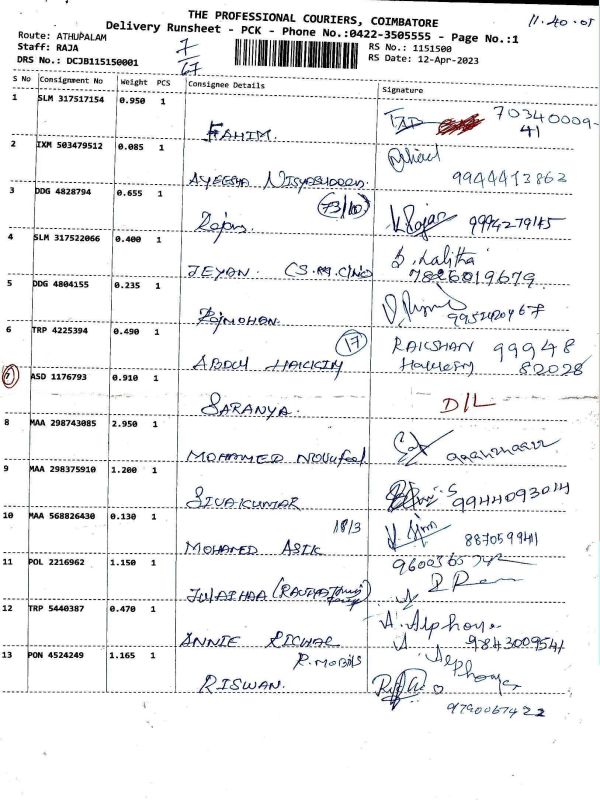 THE PROFESSIONAL COURIERS, COIMBATORE
11.40.05
Delivery Runsheet - PCK - Phone No.:0422-3505555 - Page No.:1
Route: ATHUPALAM
7
RS No.: 1151500
Staff: RAJA
67
RS Date: 12-Apr-2023
DRS No.: DCJB115150001
S No Consignment No Weight PCS Consignee Details Signature
1 SLM 317517154 0.950 1 FAHIM.
70340009-
41
2 IXM 503479512 0.085 1 AYEESHA
9944413862
3 DDG 4828794 0.655 1 73/10 Rajan K Rajan 9994279145
4 SLM 317522066 0.400 1 JEYAN. S. Lalitha
7826019679
5 DDG 4804155 0.235 1 RAJMOHAN.
6 TRP 4225394 0.490 1 17 ABDUL HAKKIM RAKSHAN 99948
82028
7 ASD 1176793 0.910 1 SARANYA. D/L
8 MAA 298743085 2.950 1 MOHAMED Noufeel
9 MAA 298375910 1.200 1 SIVAKUMAR 9944093014
10 MAA 568826430 0.130 1 18/3 MOHAMED ASIK 8870599941
11 POL 2216962 1.150 1 JULAIHAA
12 TRP 5440387 0.470 1 ANNIE A. Alphonya
9843009541
13 PON 4524249 1.165 1 R.MOBILS RISWAN. Alphonya
9790067422